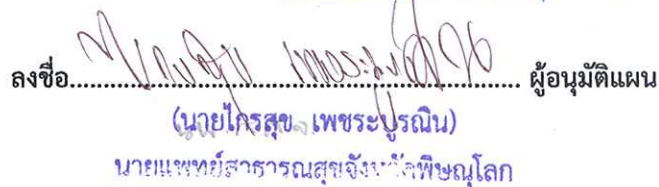 ลงชื่อ............................................................ ผู้อนุมัติแผน
(นายไกรสุข เพชระบูรณิน)
นายแพทย์สาธารณสุขจังหวัดพิษณุโลก